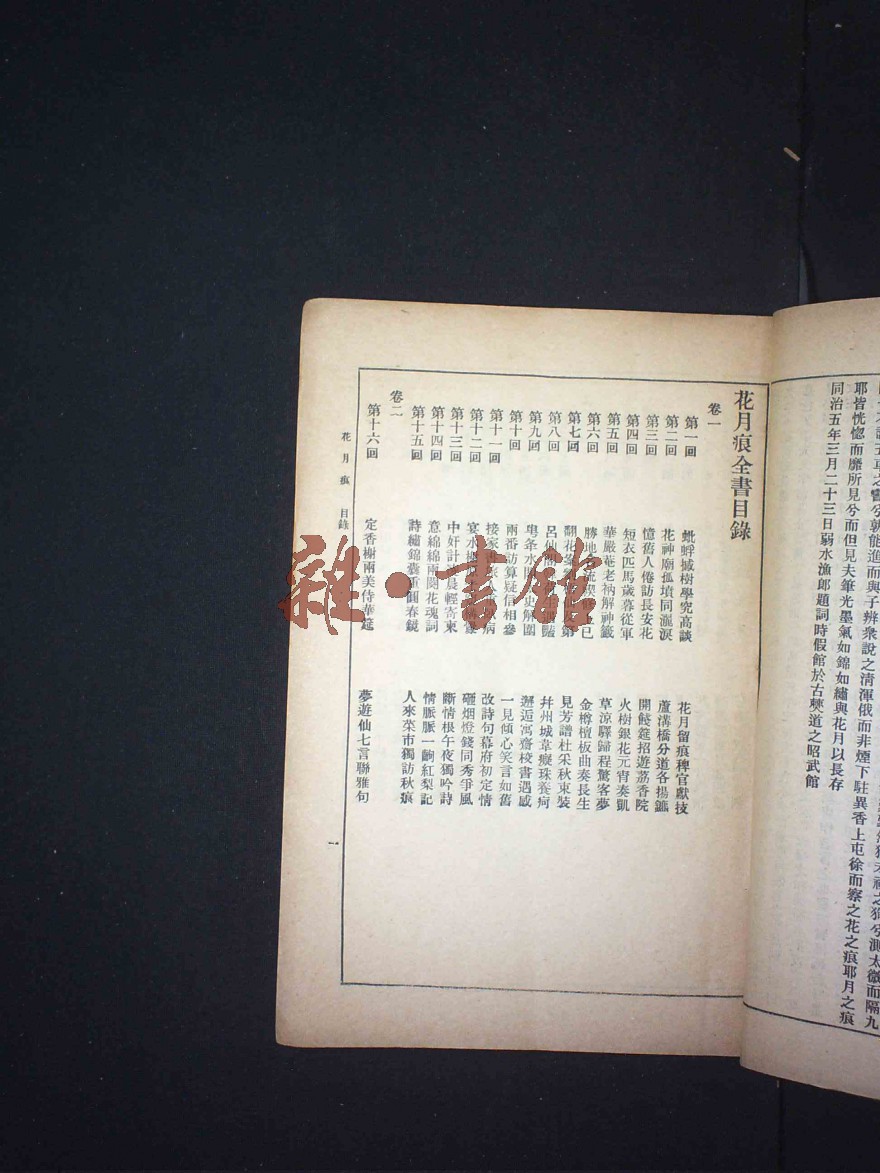 同治五年三月二十三日弱水漁郎題詞時假館於古㷼道之昭武館
耶皆恍惚而靡所見兮而但見夫筆光墨氣如錦如繡與花月以長存
兮孰能進而與子辨衆說之清渾俄而非煙下駐異香上屯徐而察之花之痕耶月之痕
太微而隔九
花月痕全書目錄
卷一
第一回 蚍蜉撼樹學究高談 花月留痕稗官獻技
第二回 花神廟孤墳同灑淚 蘆溝橋分道各揚鑣
第三回 憶舊人倦訪長安花 開餞筵招遊荔香院
第四回 短衣匹馬歲暮從軍 火樹銀花元宵奏凱
第五回 華嚴菴老衲解神籤 草涼驛歸程驚客夢
第六回 勝地 金樽檀板曲奏長生
第七回 翻花案 見芳譜杜采秋束裝
第八回 呂仙閣 幷州城韋癡珠養疴
第九回 解圍 邂逅寓齋校書遇感
第十回 兩番訪 疑信相參 一見傾心笑言如舊
第十一回 病 改詩句幕府初定情
第十二回 宴水榭 砸烟燈錢同秀爭風
第十三回 中奸計 晨輕寄柬 斷情根午夜獨吟詩
第十四回 意綿綿兩闋花魂詞 情脈脈一齣紅梨記
第十五回 詩繡錦囊重圓春鏡 人來菜市獨訪秋痕
卷二
第十六回 定香榭兩美侍華筵 夢遊仙七言聯雅句
花月痕 目錄
一
雜·書館